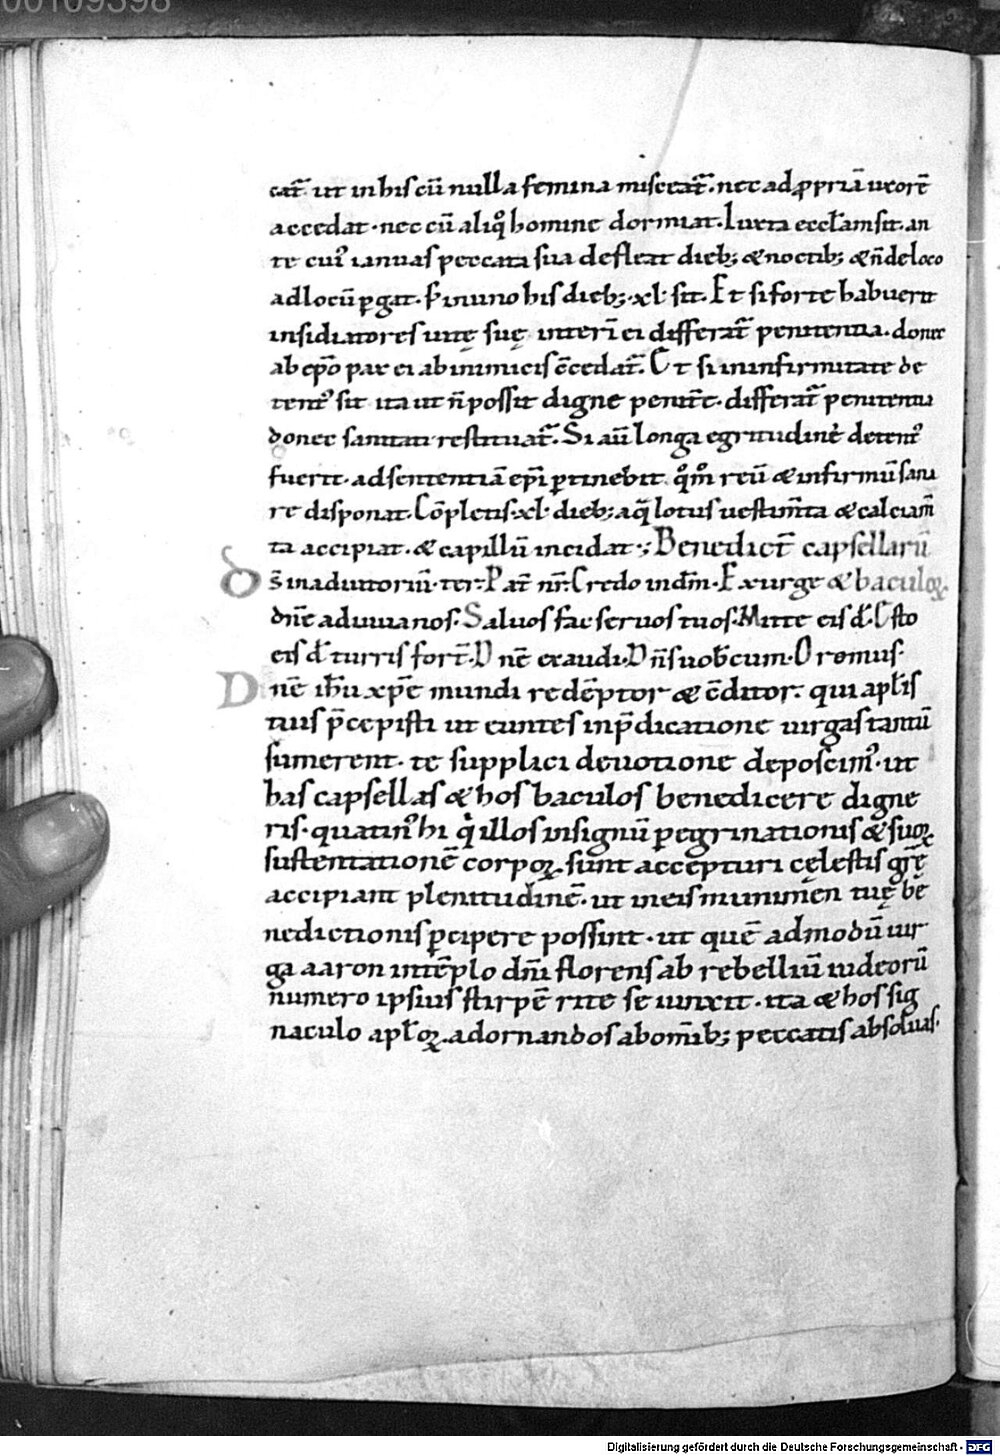 00109398
cat̄ ut in his cū nulla femina misceat̄. nec ad ꝓpriā uxorē
accedat. nec cū aliq̊ homine dormiat. Iuxta eccl̄am sit. an
te cuiꝰ ianuas peccata sua defleat dieb; & noctib; & n̄ de loco
ad locū ꝑgat. in uno his dieb; xl. sit. Et si forte habuerit
insidiatores uitę suę interī ei differat̄ penitentia. donec
ab ep̄o pax ei ab inimicis c̄cedat̄. Et si in infirmitate de
tentꝰ sit ita ut n̄ possit digne penitē. differat̄ penitentia
donec sanitati restituat̄. Si aū longa egritudine detentꝰ
fuerit. ad sententiā ep̄i ꝑtinebit. q̊m̊ reū & infirmū sana
re disponat. Cōpletis xl. dieb; aq̄ lotus uestim̄ta & calciam̄
ta accipiat. & capillū incidat.; Benedict̄ capsellarū
& baculoꝝ
Ds̄ in adiutoriū. ter. Pat̄ nr̄. Credo in dm̄. Exurge
dn̄e adiuua nos. Saluos fac seruos tuos. Mitte eis d̄. Esto
eis d̄ turris fort̄. Dn̄e exaudi. Dn̄s uob̄cum. Oremus.
Dn̄e ih̄u xp̄e mundi redēptor & c̄ditor. qui apl̄is
tuis p̄cepisti ut euntes in p̄dicatione uirgas tantū
sumerent. te supplici deuotione deposcimꝰ. ut
has capsellas & hos baculos benedicere digne
ris. quatinꝰ hi q̇ illos in signū ꝑegrinationis & suoꝝ
sustentationē corpoꝝ sunt accepturi cęlestis gr̄ę
accipiant plenitudinē. ut in eis munimen tuę be
nedictionis ꝑcipere possint. ut quē admodū uir
ga aaron in tēplo dn̄i florens ab rebelliū iudeorū
numero ipsius stirpē rite seiunxit. ita & hos sig
naculo apl̄oꝝ adornandos ab om̄ib; peccatis absoluas.
Digitalisierung gefördert durch die Deutsche Forschungsgemeinschaft - DFG